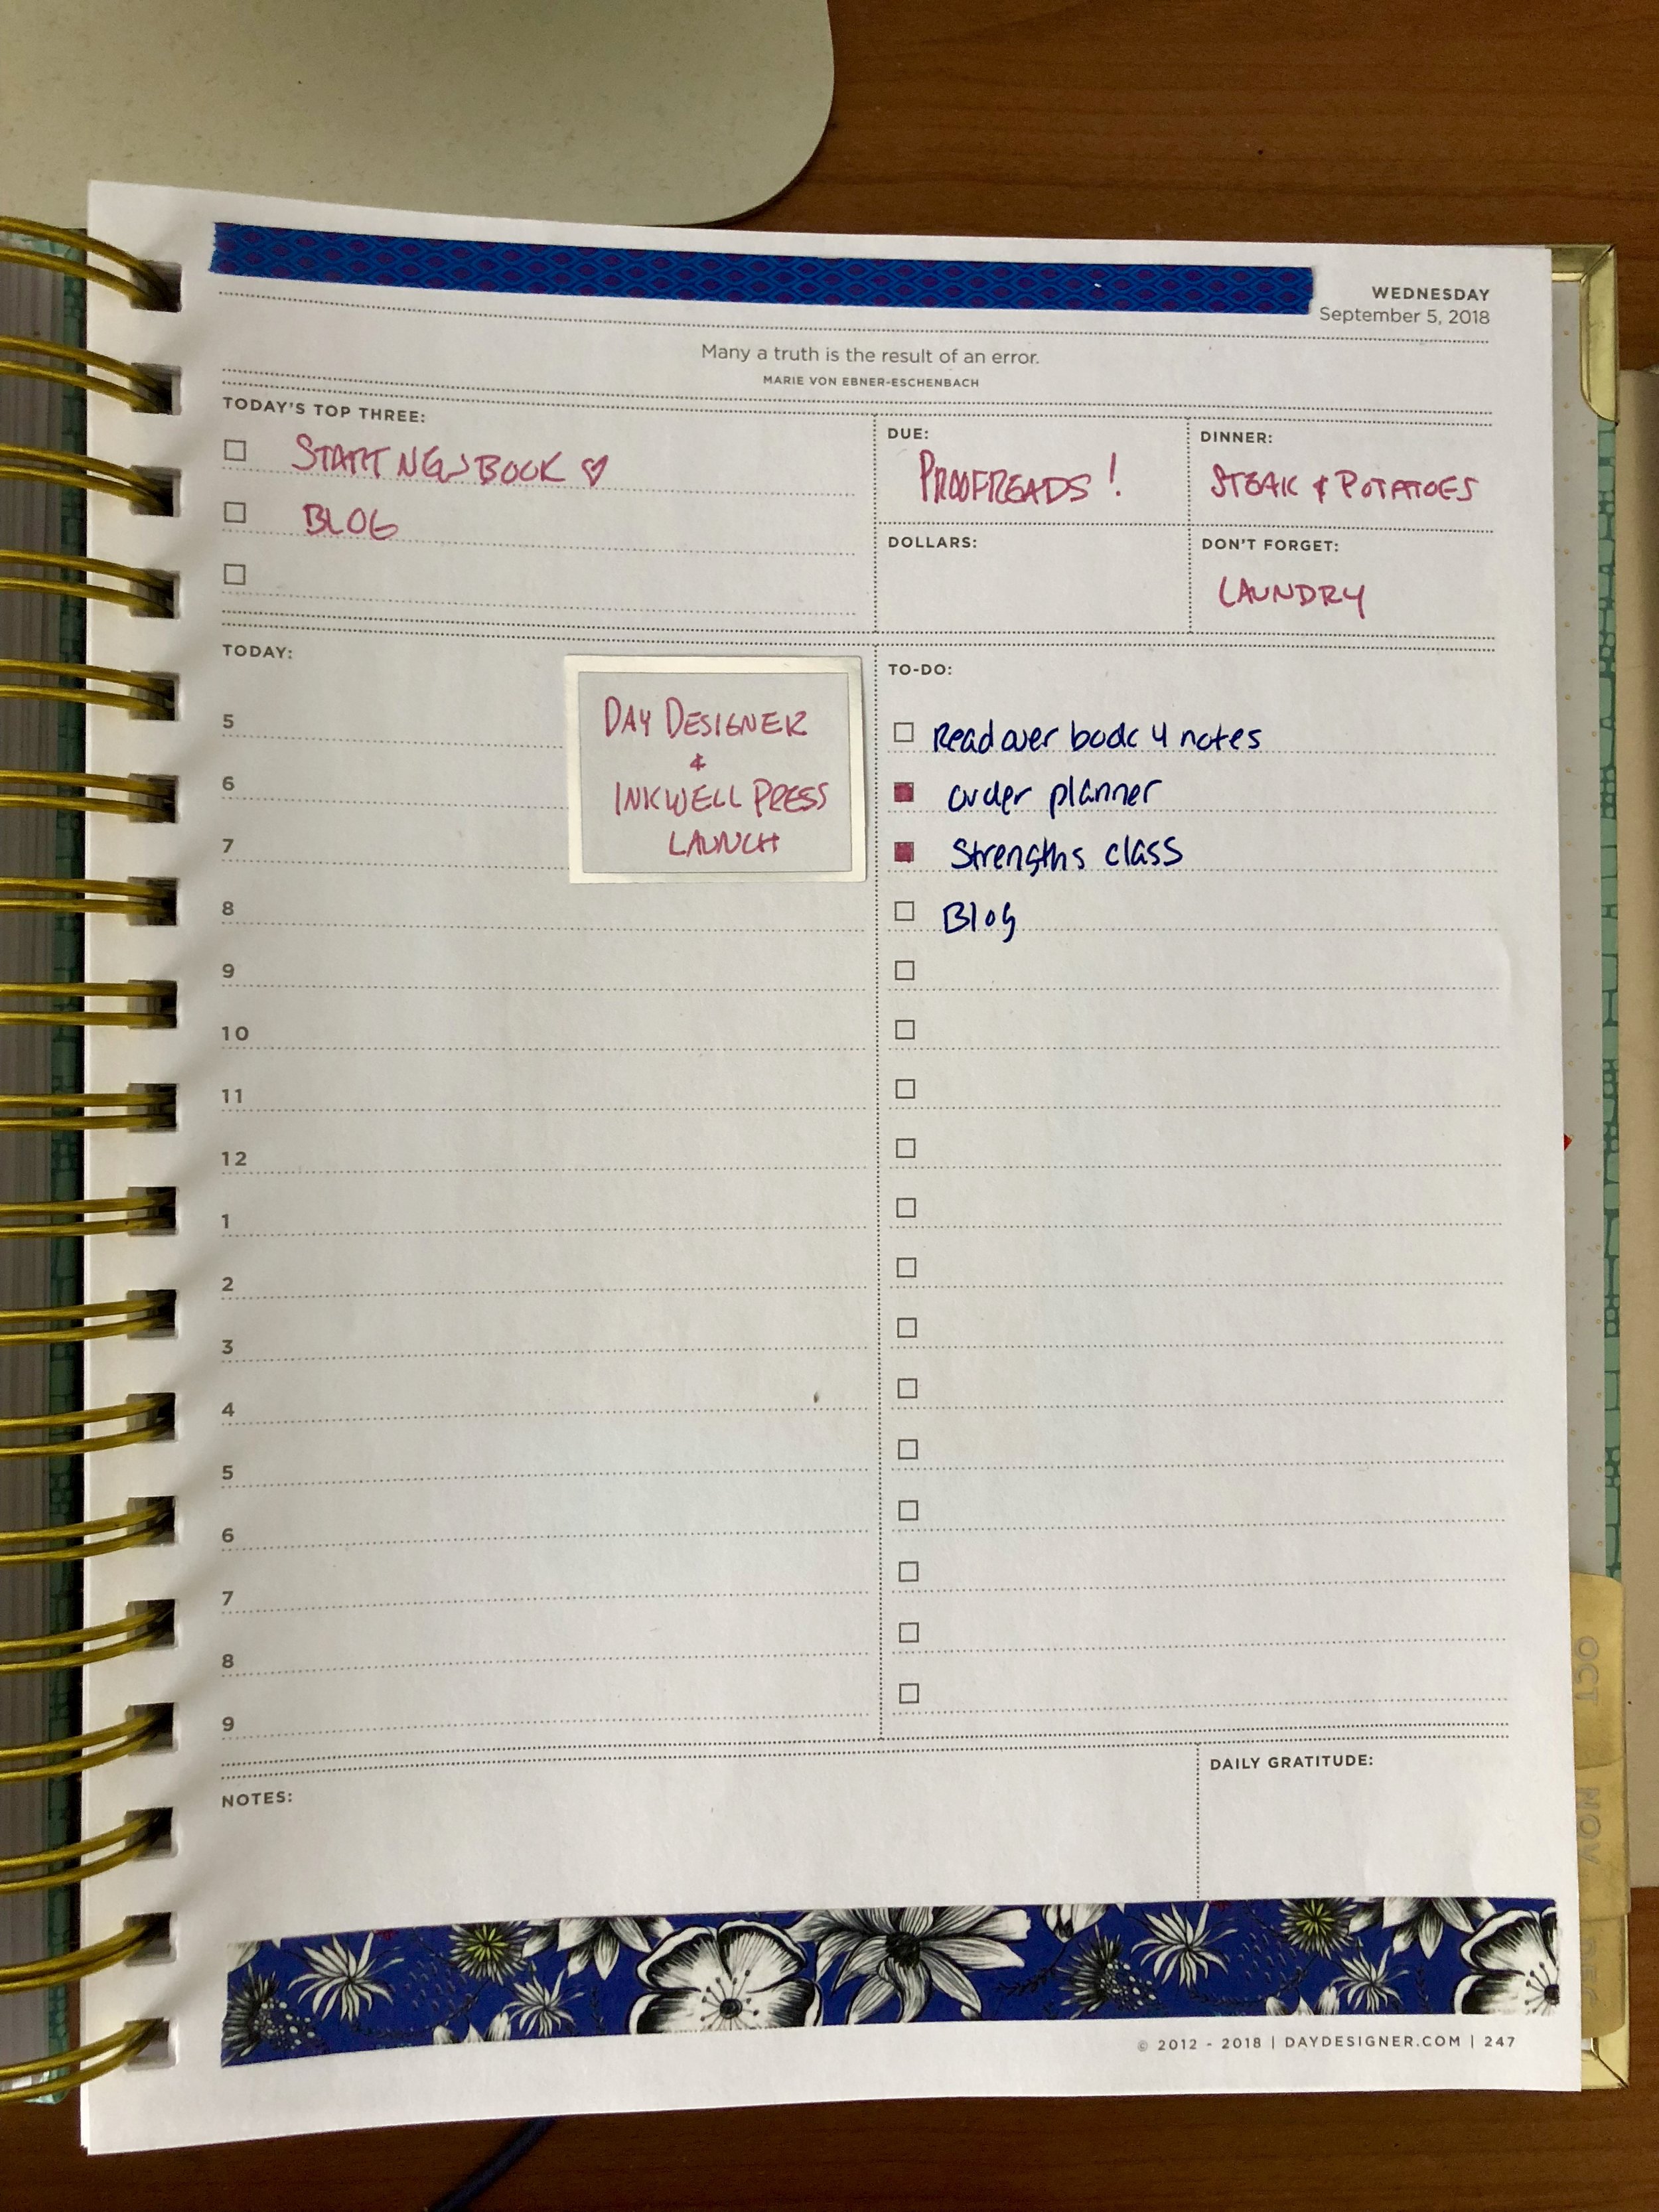 WEDNESDAY
September 5, 2018
Many a truth is the result of an error.
MARIE VON EBNER-ESCHENBACH
TODAY'S TOP THREE:
START NEW BOOK
BLOG
DUE:
PROOFREADS!
DINNER:
STEAK & POTATOES
DOLLARS:
DON'T FORGET:
LAUNDRY
TODAY:
DAY DESIGNER
&
INKWELL PRESS
LAUNCH
5
6
7
8
9
10
11
12
1
2
3
4
5
6
7
8
9
TO-DO:
Read over book 4 notes
order planner
Strengths class
Blog
NOTES:
DAILY GRATITUDE:
© 2012 - 2018 | DAYDESIGNER.COM | 247
OCT
NOV
DEC